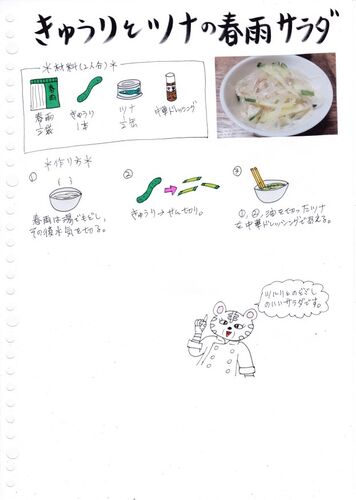 きゅうりとツナの春雨サラダ
*材料(2人分)*
春雨
春雨
1/2袋
きゅうり
1本
ツナ
1/2缶
中華ドレッシング
*作り方*
①
春雨は湯でもどし、
その後水気を切る。
②
きゅうり→せん切り。
③
①、②、油を切ったツナ
を中華ドレッシングで和える。
ツルリとのどごし
のいいサラダです。